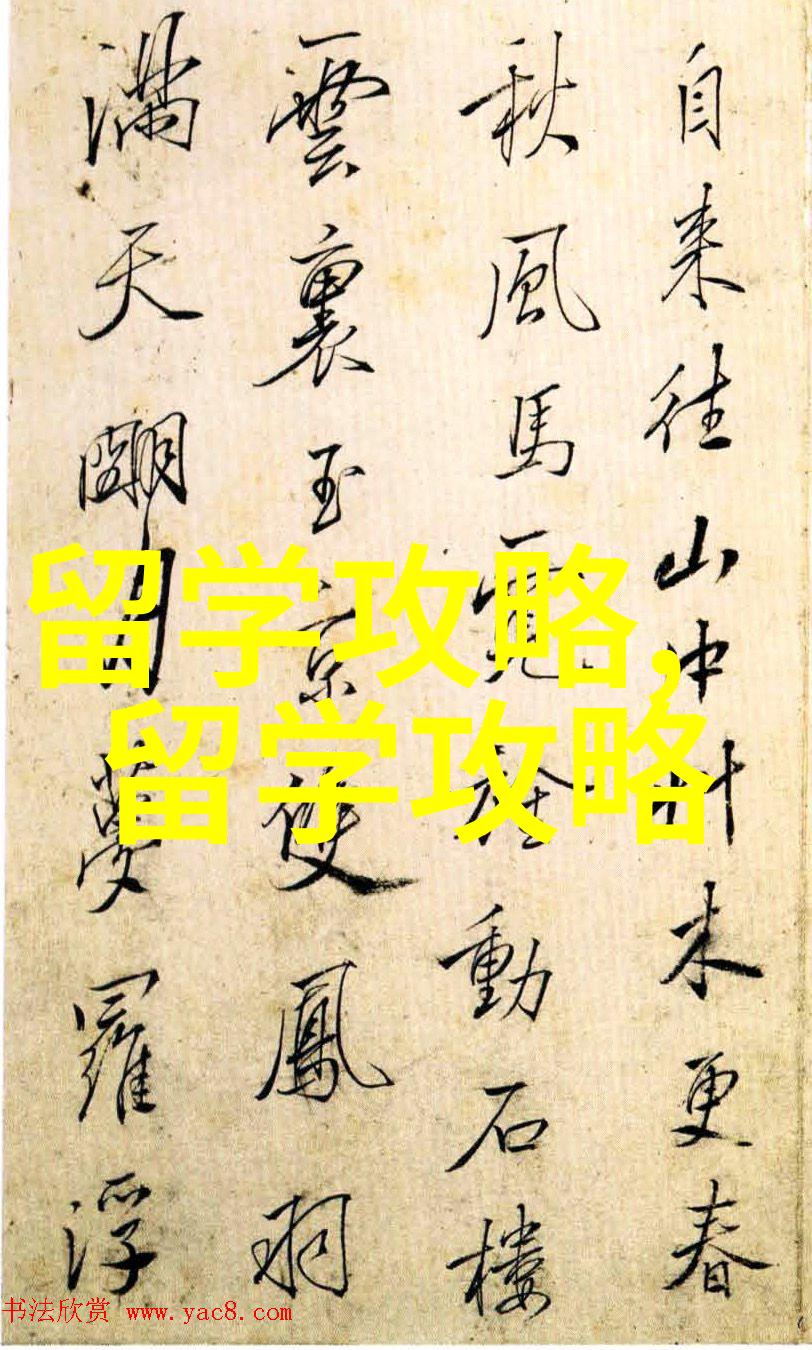 自来往山中更春
秋風馬動石樓
雲裏玉京雙鳳
满天月夢羅浮
留学攻略,
留学攻略
书法欣赏 www.yac8.com